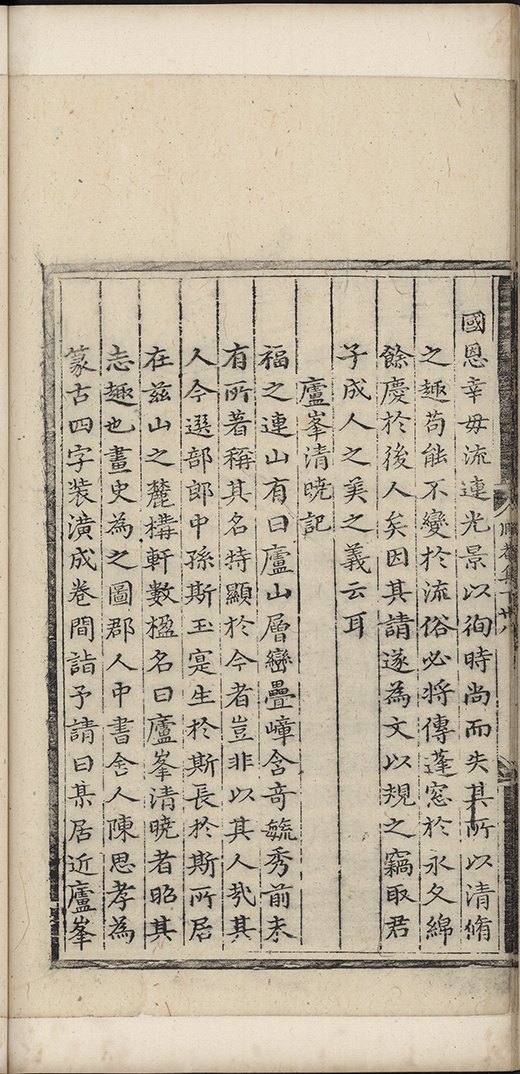 國恩幸毋流連光景以徇時尚而失其所以清脩
之趣苟能不變於流俗必將傳蓬窓於永久綿
餘慶於後人矣因其請遂為文以規之竊取君
子成人之美之義云耳
廬峯清曉記
福之連山有曰廬山層巒疊嶂含竒毓秀前未
有所著稱其名特顯於今者豈非以其人㢤其
人今選部郎中孫斯玉寔生於斯長於斯所居
在茲山之麓構軒數楹名曰廬峯清曉者昭其
志趣也畫史為之圖郡人中書舍人陳思孝為
篆古四字装潢成卷間詣予請曰某居近廬峯